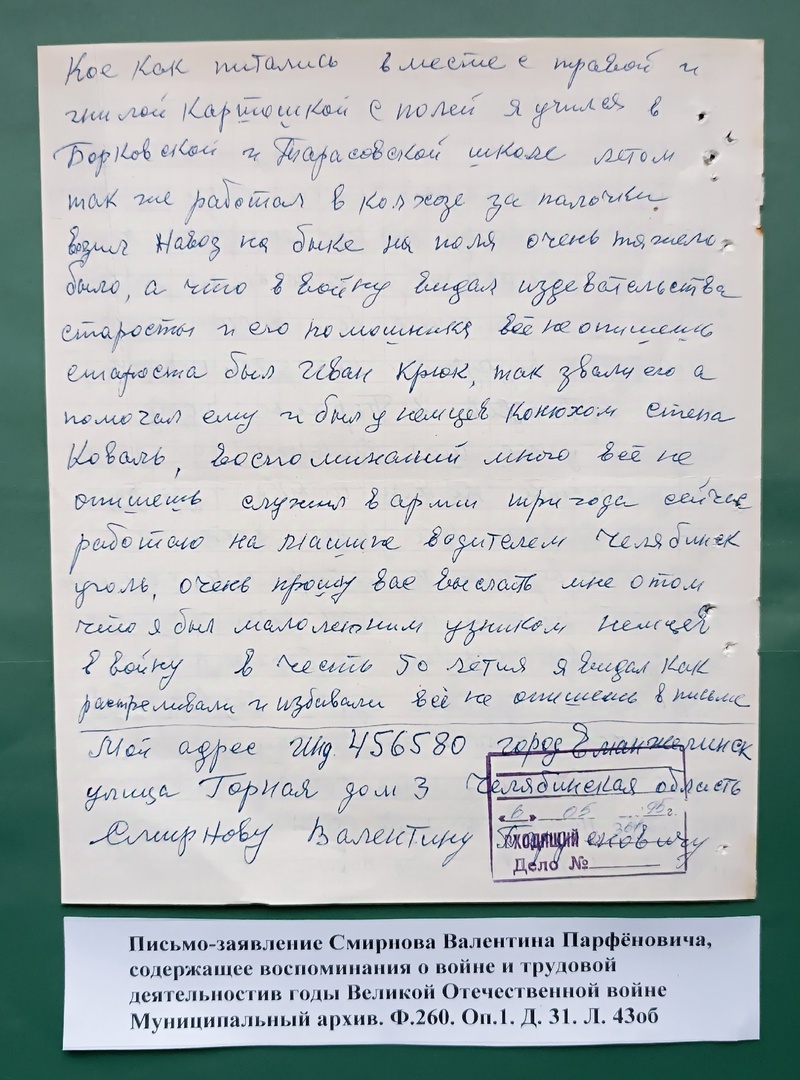 Кое как питались вместе с травой и
гнилой картошкой с полей я учился в
Борковской и Тарасовской школе летом
так же работал в колхозе за палочки
возил навоз на быке на поля очень тяжело
было, а что в войну видал издевательства
старосты и его помошника всё не опишешь
староста был Иван Крюк, так звали его а
помогал ему и был у немцев конюхом Степа
Коваль, воспоминаний много всё не
опишешь служил в армии три года сейчас
работаю на машине водителем Челябинск
уголь, очень прошу вас выслать мне о том
что я был малолетним узником немцев
в войну в честь 50 летия я видал как
растреливали и избивали всё не опишешь в письме
Мой адрес Инд. 456580 город Еманжелинск
улица Горная дом 3 Челябинская область
Смирнову Валентину Парфеновичу
«6» 05 95 г.
ВХОДЯЩИЙ
Дело №
Письмо-заявление Смирнова Валентина Парфёновича,
содержащее воспоминания о войне и трудовой
деятельностив годы Великой Отечественной войне
Муниципальный архив. Ф.260. Оп.1. Д. 31. Л. 43об